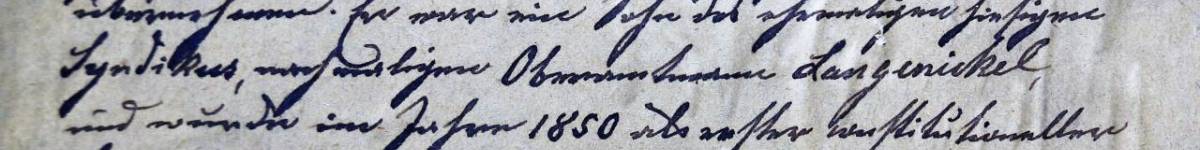 übernehmen. Er war ein Sohn des ehemaligen hiesigen
Syndikus, nachmaligen Oberamtmann Langenickel,
und wurde im Jahre 1850 als erster constitutioneller